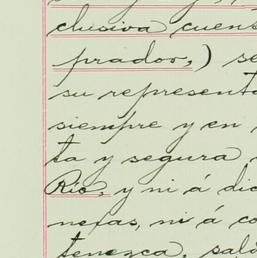 clusiva cuent
prador,) se
su represent
siempre y en
ta y segura
Rio, y ni á dic
neras, ni á co
tenezca, sal